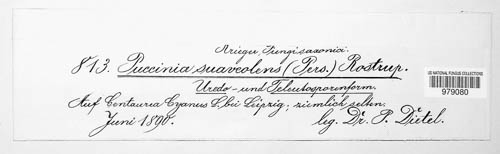 Krieger, Fungi saxonici.
813. Puccinia suaveolens (Pers.) Rostrup.
Uredo- und Teleutosporenform.
Auf Centaurea Cyanus L. bei Leipzig; ziemlich selten.
Juni 1890. leg. Dr. P. Dietel.
US NATIONAL FUNGUS COLLECTIONS
979080